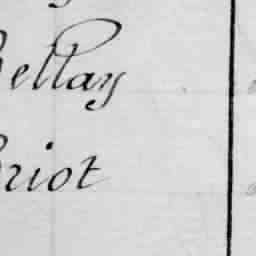 Bellay
Briot